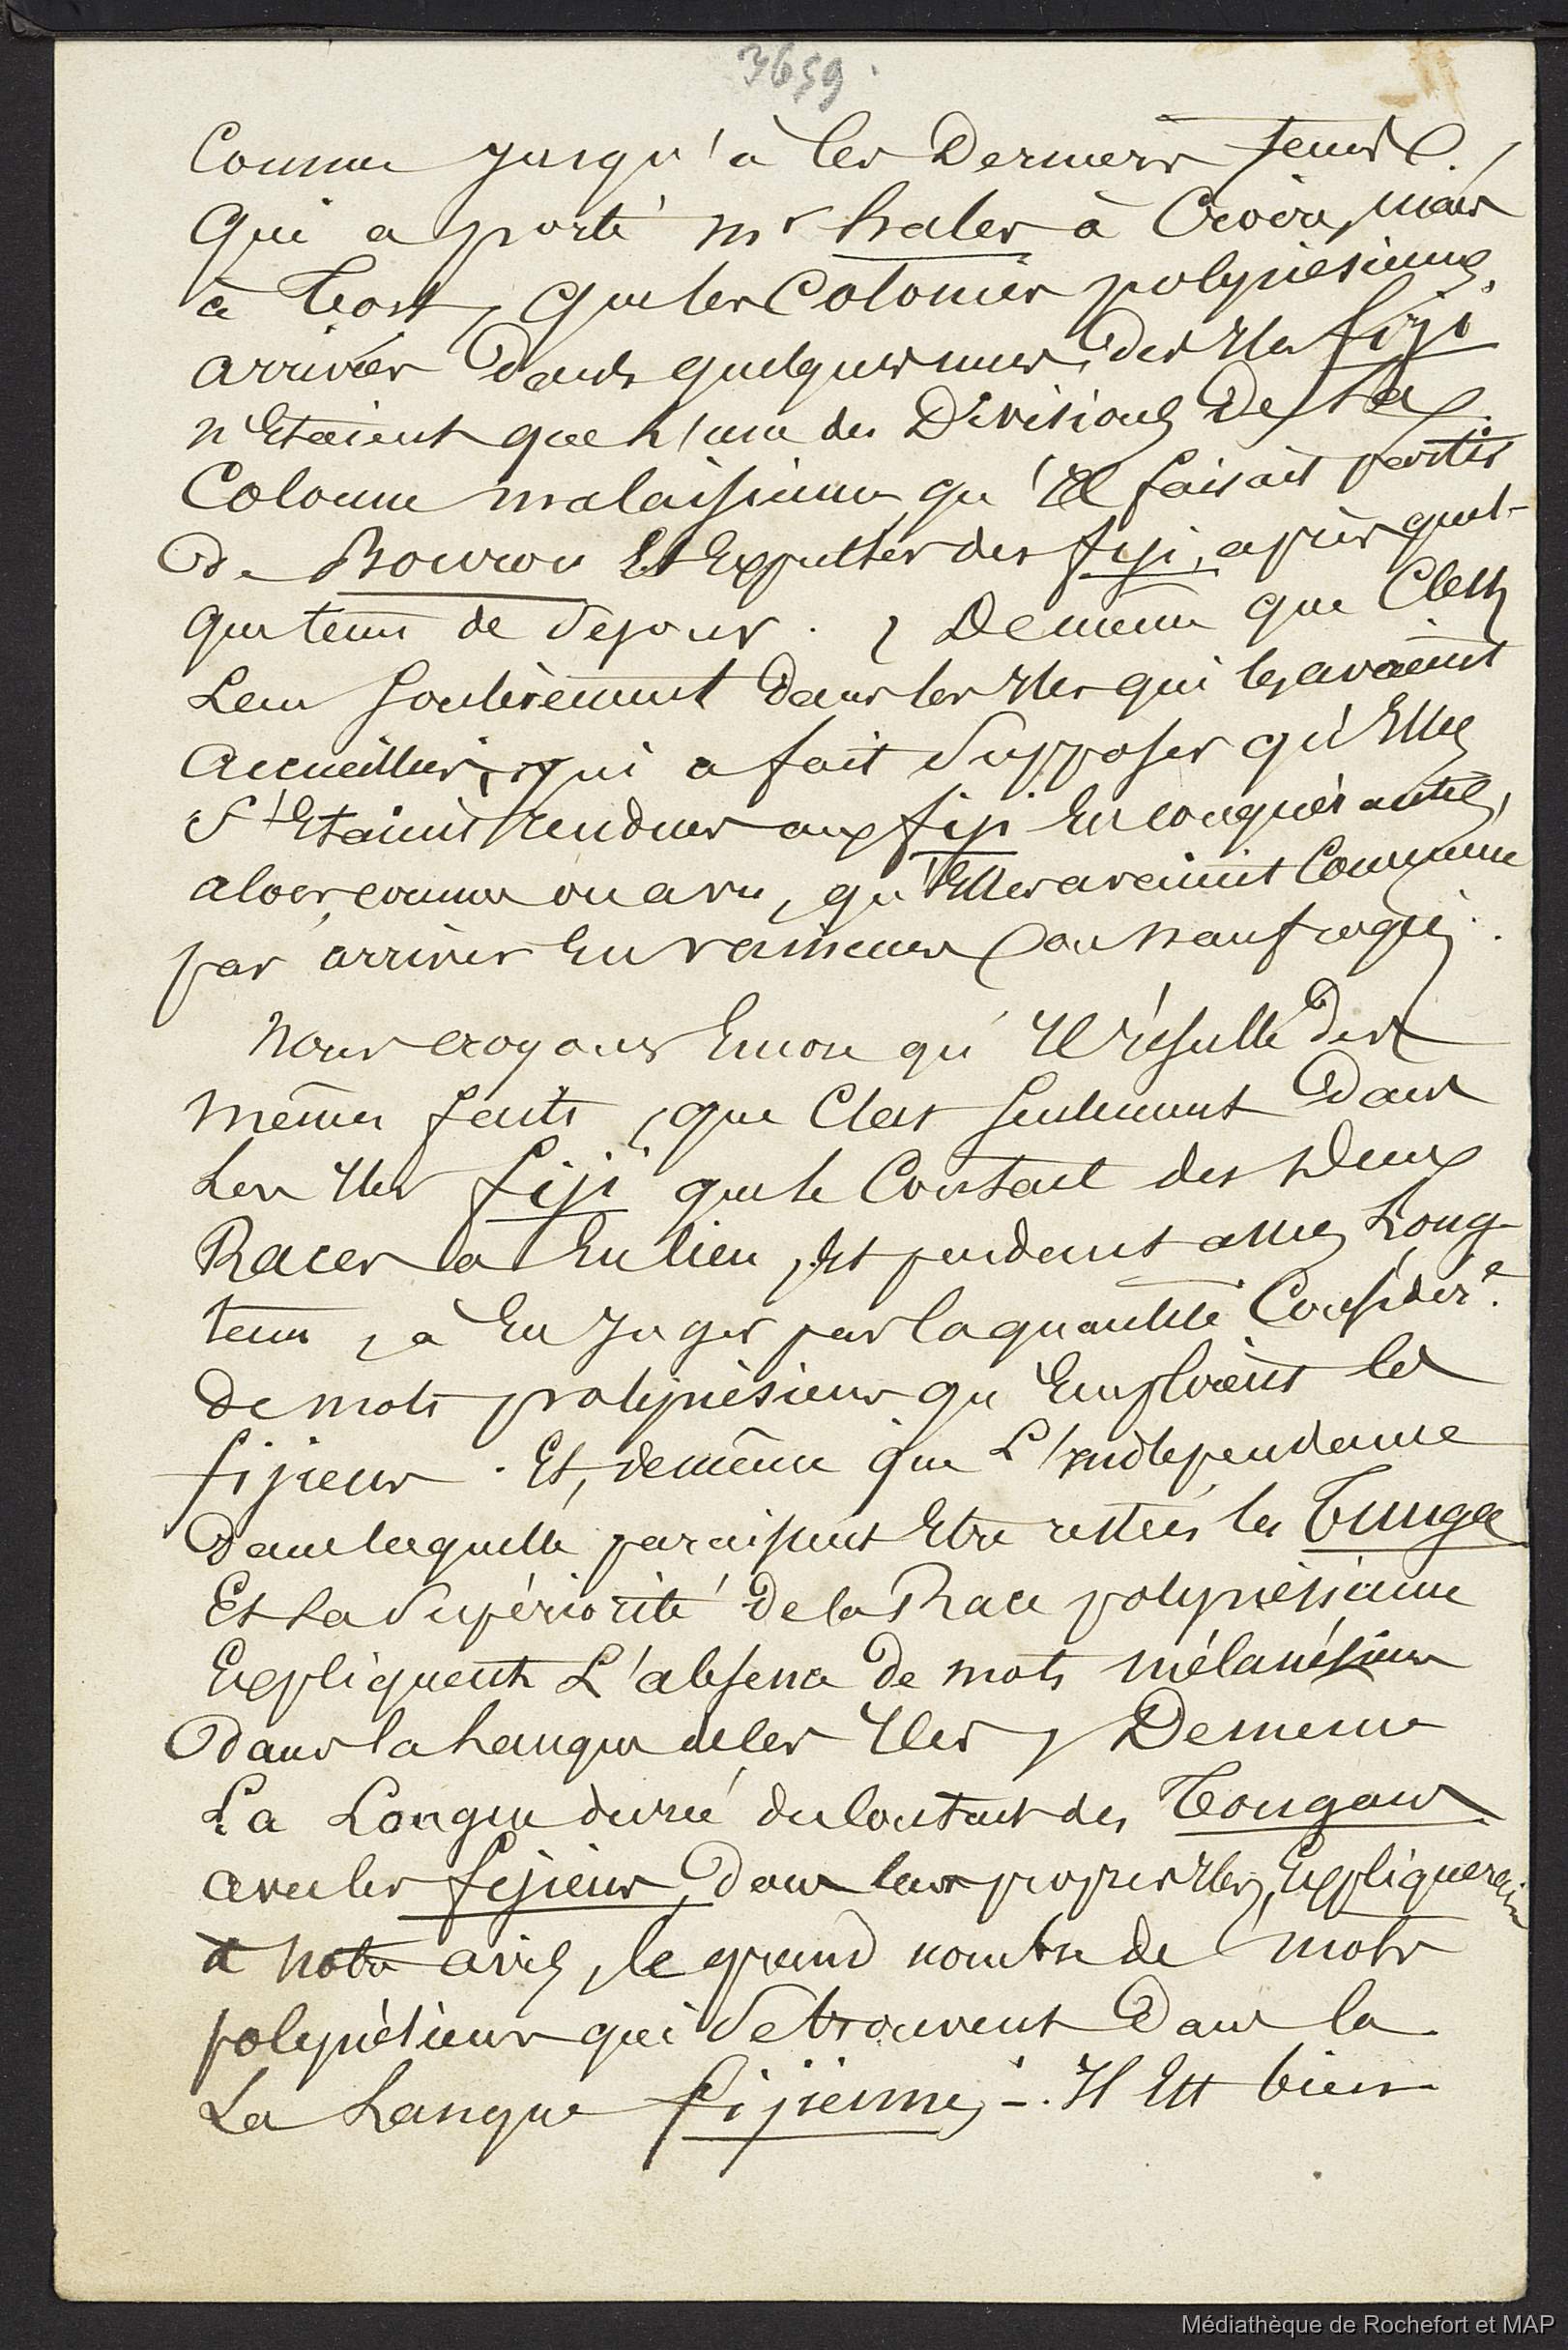 3659.
Connu jusqu'à ces Derniers tems
Qui a porté Mr hales à Croire, mais
à tort, que les Colonies polynésiennes,
arrivées dans quelques unes des Iles fiji
n'Etaient que l'une des Divisions de la
Colonne malaisienne qu'Il faisait partir
De Bourou Et Expulsées des fiji, après quel-
que tems de séjour. , De même que C'est
Leur soulèvement dans les Iles qui les avaient
accueillies, qui a fait supposer qu'Elles
s'Etaient rendues aux fiji En conquérantes,
alors, comme on a vu, qu'Elles avaient Commencé
par arriver En vaincues ou naufragés.
Nous croyons Encore qu'Il résulte des
mêmes faits, que C'est seulement dans
Les Iles fiji que le Contact des Deux
Races a Eu lieu, Et pendant assez Long-
tems, à En Juger par la quantité Considére.
de mots polynésiens qu'Emploient les
fijiens. Et, de même que L'Indépendance
Dans laquelle paraissent Etre restées les Tunga
Et la supériorité de la Race polynésienne
Expliquent L'absence de mots mélanésiens
dans la Langue de ces Iles, De meme
La Longue durée du Contact des Tongans
avec les fijiens, dans leurs propres Iles, Expliquerait
à notre avis, le grand nombre de mots
polynésiens qui se trouvent Dans la
La Langue fijienne, -. Il Est bien
Médiathèque de Rochefort et MAP